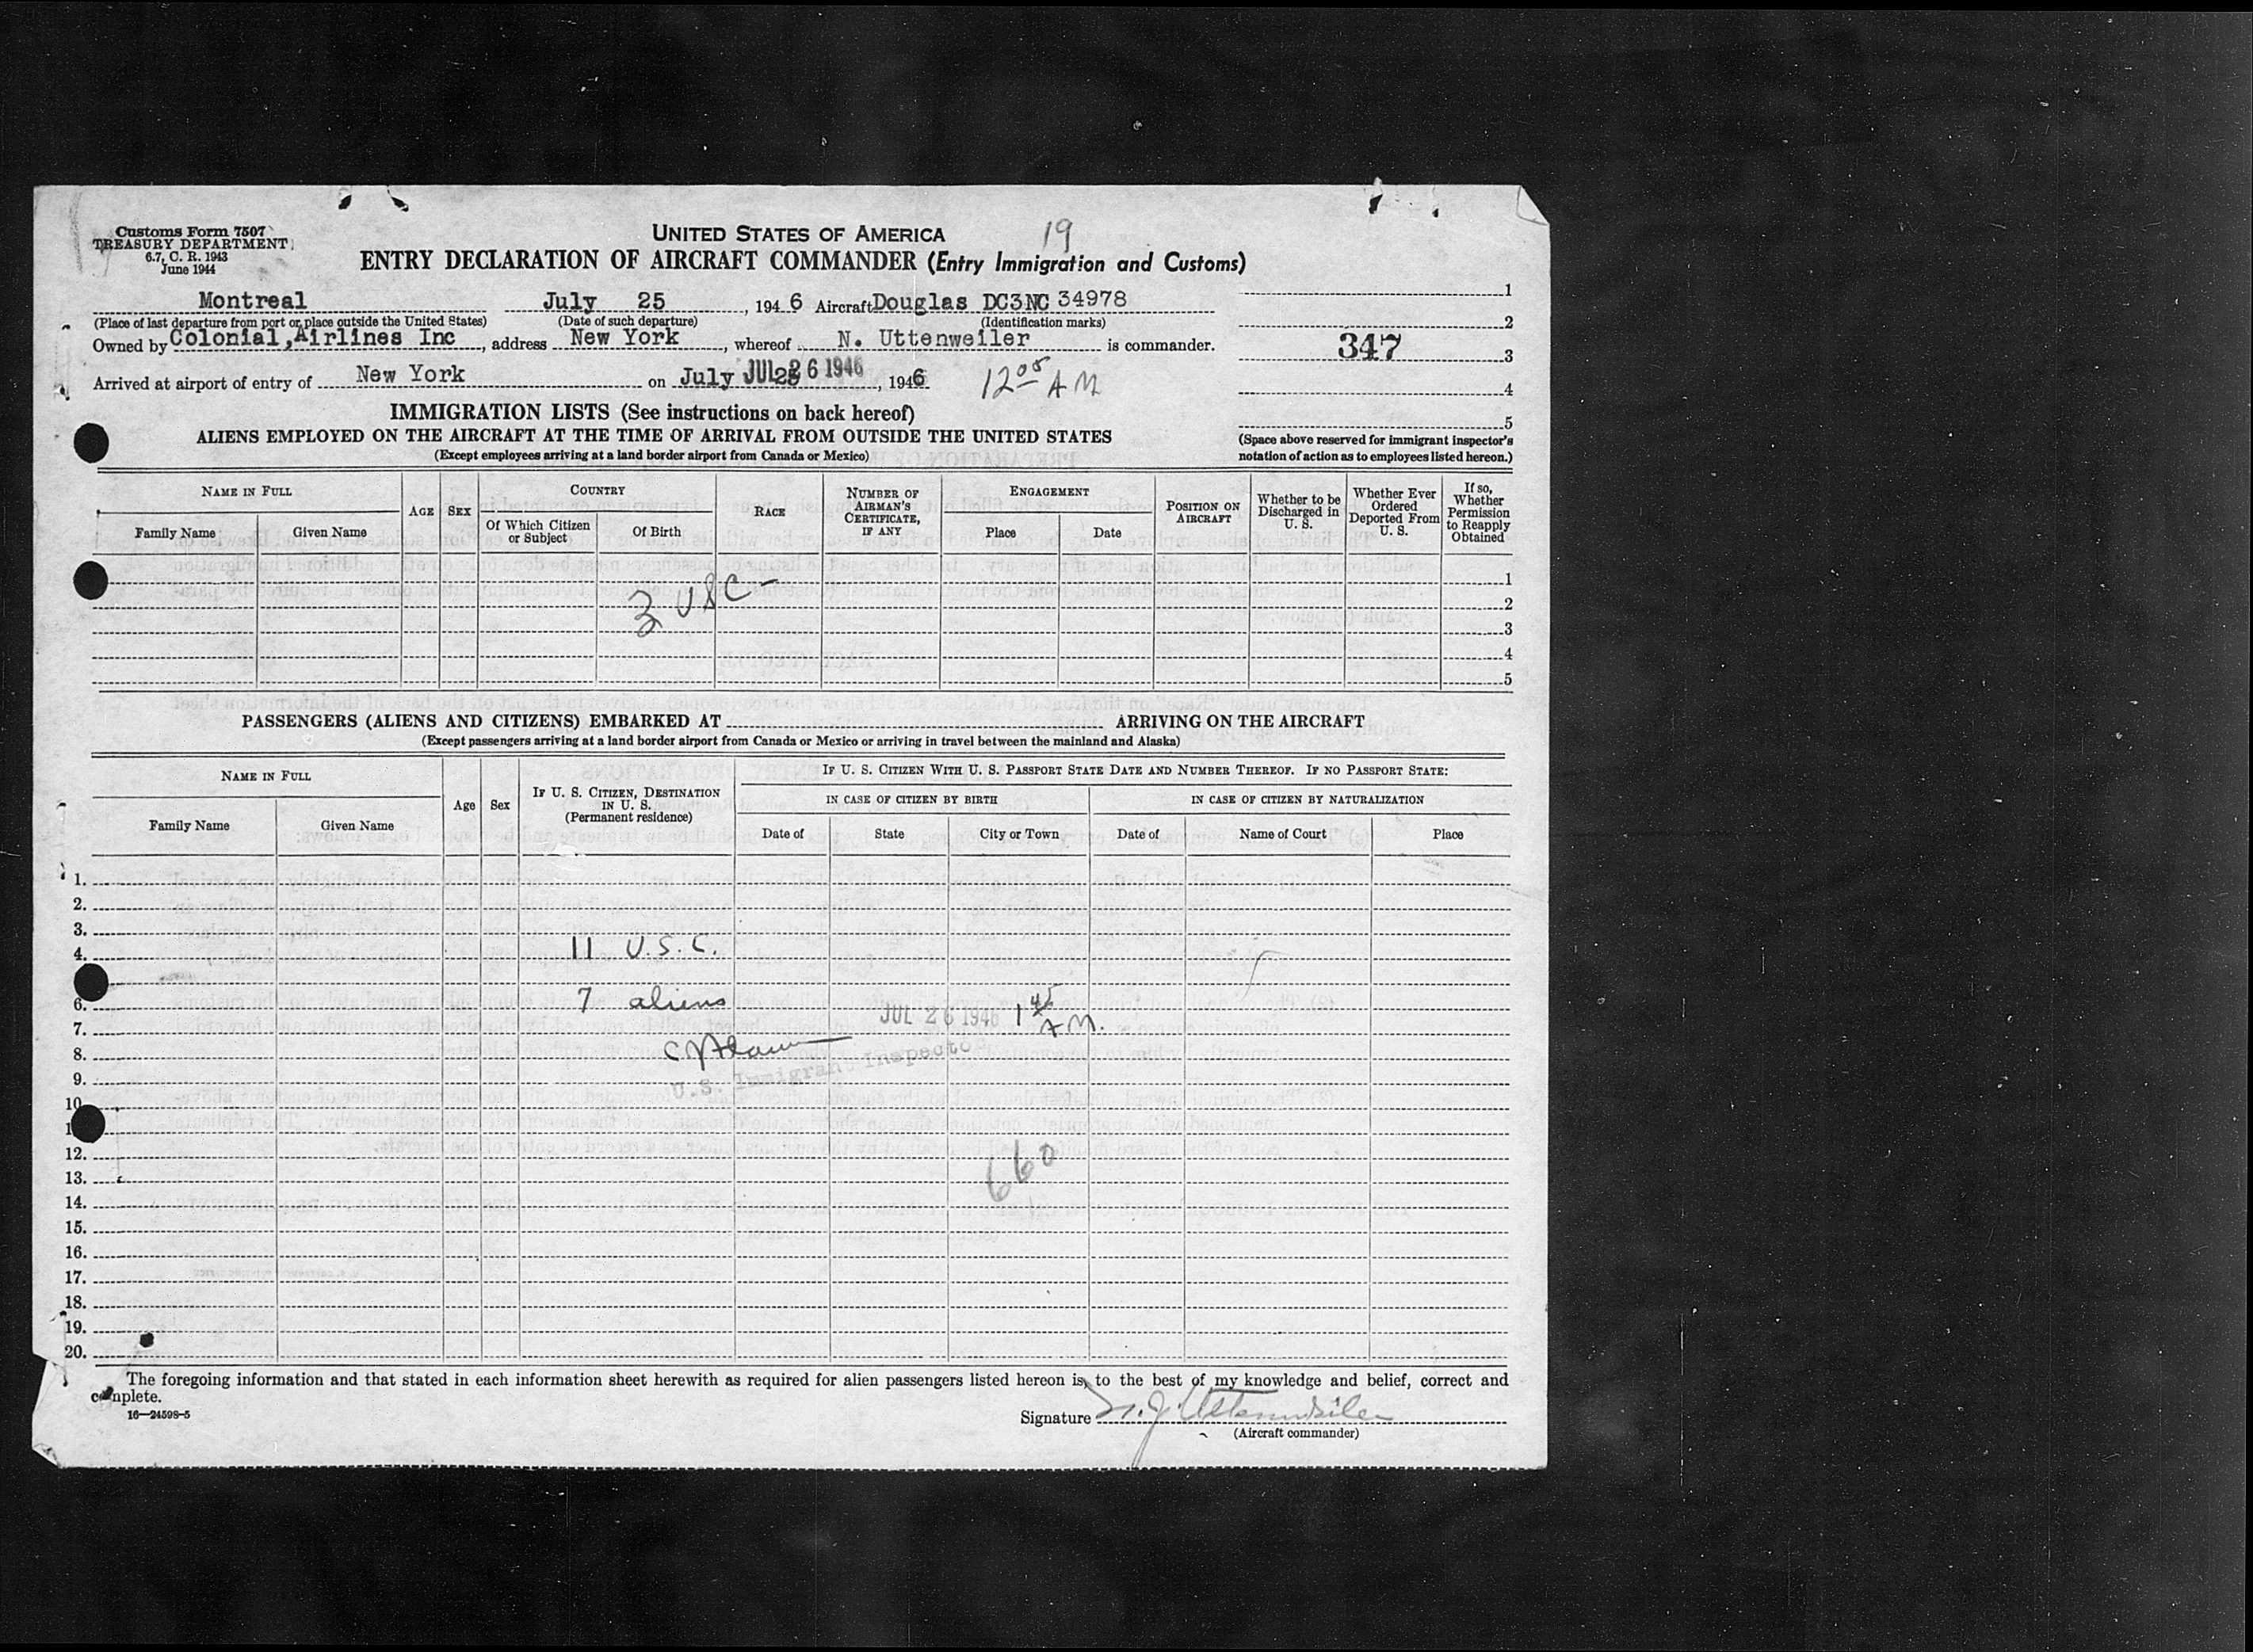 Customs Form 7507
TREASURY DEPARTMENT
6.7, C. R. 1943
June 1944
UNITED STATES OF AMERICA
19
ENTRY DECLARATION OF AIRCRAFT COMMANDER (Entry Immigration and Customs)
Montreal July 25, 1946 Aircraft Douglas DC3NC 34978
(Place of last departure from port or place outside the United States) (Date of such departure) (Identification marks)
Owned by Colonial Airlines Inc, address New York, whereof N. Uttenweiler is commander.
Arrived at airport of entry of New York on July JUL 26 1946, 1946 12 05 AM
1
2
347 3
4
5
(Space above reserved for immigrant inspector's
notation of action as to employees listed hereon.)
IMMIGRATION LISTS (See instructions on back hereof)
ALIENS EMPLOYED ON THE AIRCRAFT AT THE TIME OF ARRIVAL FROM OUTSIDE THE UNITED STATES
(Except employees arriving at a land border airport from Canada or Mexico)
NAME IN FULL
Family Name Given Name
AGE SEX
COUNTRY
Of Which Citizen or Subject Of Birth
RACE
NUMBER OF AIRMAN'S CERTIFICATE, IF ANY
ENGAGEMENT
Place Date
POSITION ON AIRCRAFT
Whether to be Discharged in U. S.
Whether Ever Ordered Deported From U. S.
If so, Whether Permission to Reapply Obtained
3 USC -
1
2
3
4
5
PASSENGERS (ALIENS AND CITIZENS) EMBARKED AT ARRIVING ON THE AIRCRAFT
(Except passengers arriving at a land border airport from Canada or Mexico or arriving in travel between the mainland and Alaska)
NAME IN FULL
Family Name Given Name
Age Sex
IF U. S. CITIZEN, DESTINATION IN U. S.
(Permanent residence)
IF U. S. CITIZEN WITH U. S. PASSPORT STATE DATE AND NUMBER THEREOF. IF NO PASSPORT STATE:
IN CASE OF CITIZEN BY BIRTH IN CASE OF CITIZEN BY NATURALIZATION
Date of State City or Town Date of Name of Court Place
1.
2.
3.
4. 11 U.S.C.
6. 7 aliens
7. JUL 26 1946 1 45 A.M.
8.
U.S. Immigrant Inspector
9.
10.
12.
660
13.
14.
15.
16.
17.
18.
19.
20.
The foregoing information and that stated in each information sheet herewith as required for alien passengers listed hereon is, to the best of my knowledge and belief, correct and
complete.
16—24598-5
Signature N. J. Uttenweiler
(Aircraft commander)